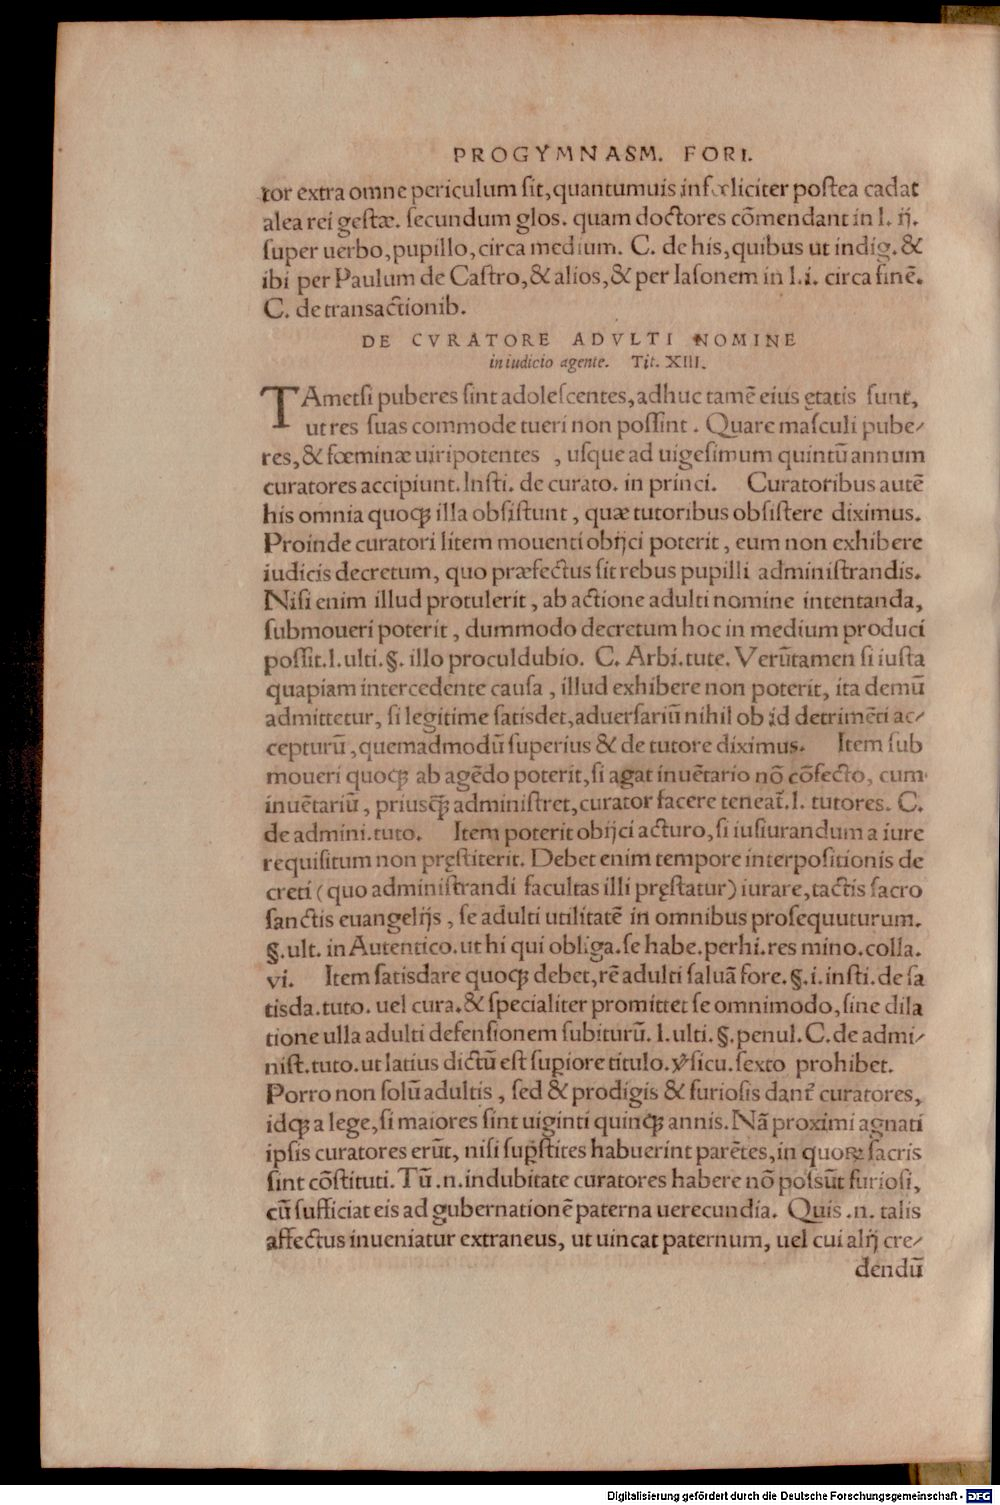 PROGYMNASM. FORI.
tor extra omne periculum sit, quantumuis infœliciter postea cadat
alea rei gestæ. secundum glos. quam doctores cōmendant in l. ij.
super uerbo, pupillo, circa medium. C. de his, quibus ut indig. &
ibi per Paulum de Castro, & alios, & per Iasonem in l. i. circa finē.
C. de transactionib.
DE CVRATORE ADVLTI NOMINE
in iudicio agente. Tit. XIII.
TAmetsi puberes sint adolescentes, adhuc tamē eius ętatis sunt,
ut res suas commode tueri non possint. Quare masculi pube⸗
res, & fœminæ uiripotentes , usque ad uigesimum quintū annum
curatores accipiunt. Insti. de curato. in princi. Curatoribus autē
his omnia quoqꝫ illa obsistunt, quæ tutoribus obsistere diximus.
Proinde curatori litem mouenti obijci poterit, eum non exhibere
iudicis decretum, quo præfectus sit rebus pupilli administrandis.
Nisi enim illud protulerit, ab actione adulti nomine intentanda,
submoueri poterit, dummodo decretum hoc in medium produci
possit. l. ulti. §. illo proculdubio. C. Arbi. tute. Verūtamen si iusta
quapiam intercedente causa, illud exhibere non poterit, ita demū
admittetur, si legitime satisdet, aduersariū nihil ob id detrimēti ac⸗
cepturū, quemadmodū superius & de tutore diximus. Item sub
moueri quoqꝫ ab agēdo poterit, si agat inuētario nō cōfecto, cum
inuētariū, priusqꝫ administret, curator facere teneat᷑. l. tutores. C.
de admini. tuto. Item poterit obijci acturo, si iusiurandum a iure
requisitum non pręstiterit. Debet enim tempore interpositionis de
creti (quo administrandi facultas illi pręstatur) iurare, tactis sacro
sanctis euangelijs, se adulti utilitatē in omnibus prosequuturum.
§. ult. in Autentico. ut hi qui obliga. se habe. perhi. res mino. colla.
vi. Item satisdare quoqꝫ debet, rē adulti saluā fore. §. i. insti. de sa
tisda. tuto. uel cura. & specialiter promittet se omnimodo, sine dila
tione ulla adulti defensionem subiturū. l. ulti. §. penul. C. de admi⸗
nist. tuto. ut latius dictū est suꝑiore titulo. ꝟsicu. sexto prohibet.
Porro non solū adultis, sed & prodigis & furiosis dant᷑ curatores,
idqꝫ a lege, si maiores sint uiginti quinqꝫ annis. Nā proximi agnati
ipsis curatores erūt, nisi suꝑstites habuerint parētes, in quoꝝ sacris
sint cōstituti. Tū .n. indubitate curatores habere nō possūt furiosi,
cū sufficiat eis ad gubernationē paterna uerecundia. Quis .n. talis
affectus inueniatur extraneus, ut uincat paternum, uel cui alij cre⸗
dendū
Digitalisierung gefördert durch die Deutsche Forschungsgemeinschaft - DFG